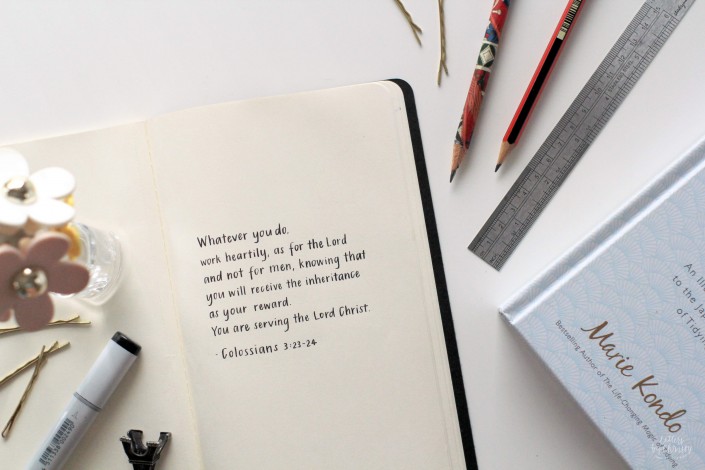 Whatever you do,
work heartily, as for the Lord
and not for men, knowing that
you will receive the inheritance
as your reward.
You are serving the Lord Christ.
- Colossians 3:23-24
to the
of Tidy
Marie Kondo
Bestselling Author of The Life-Changing Magic of